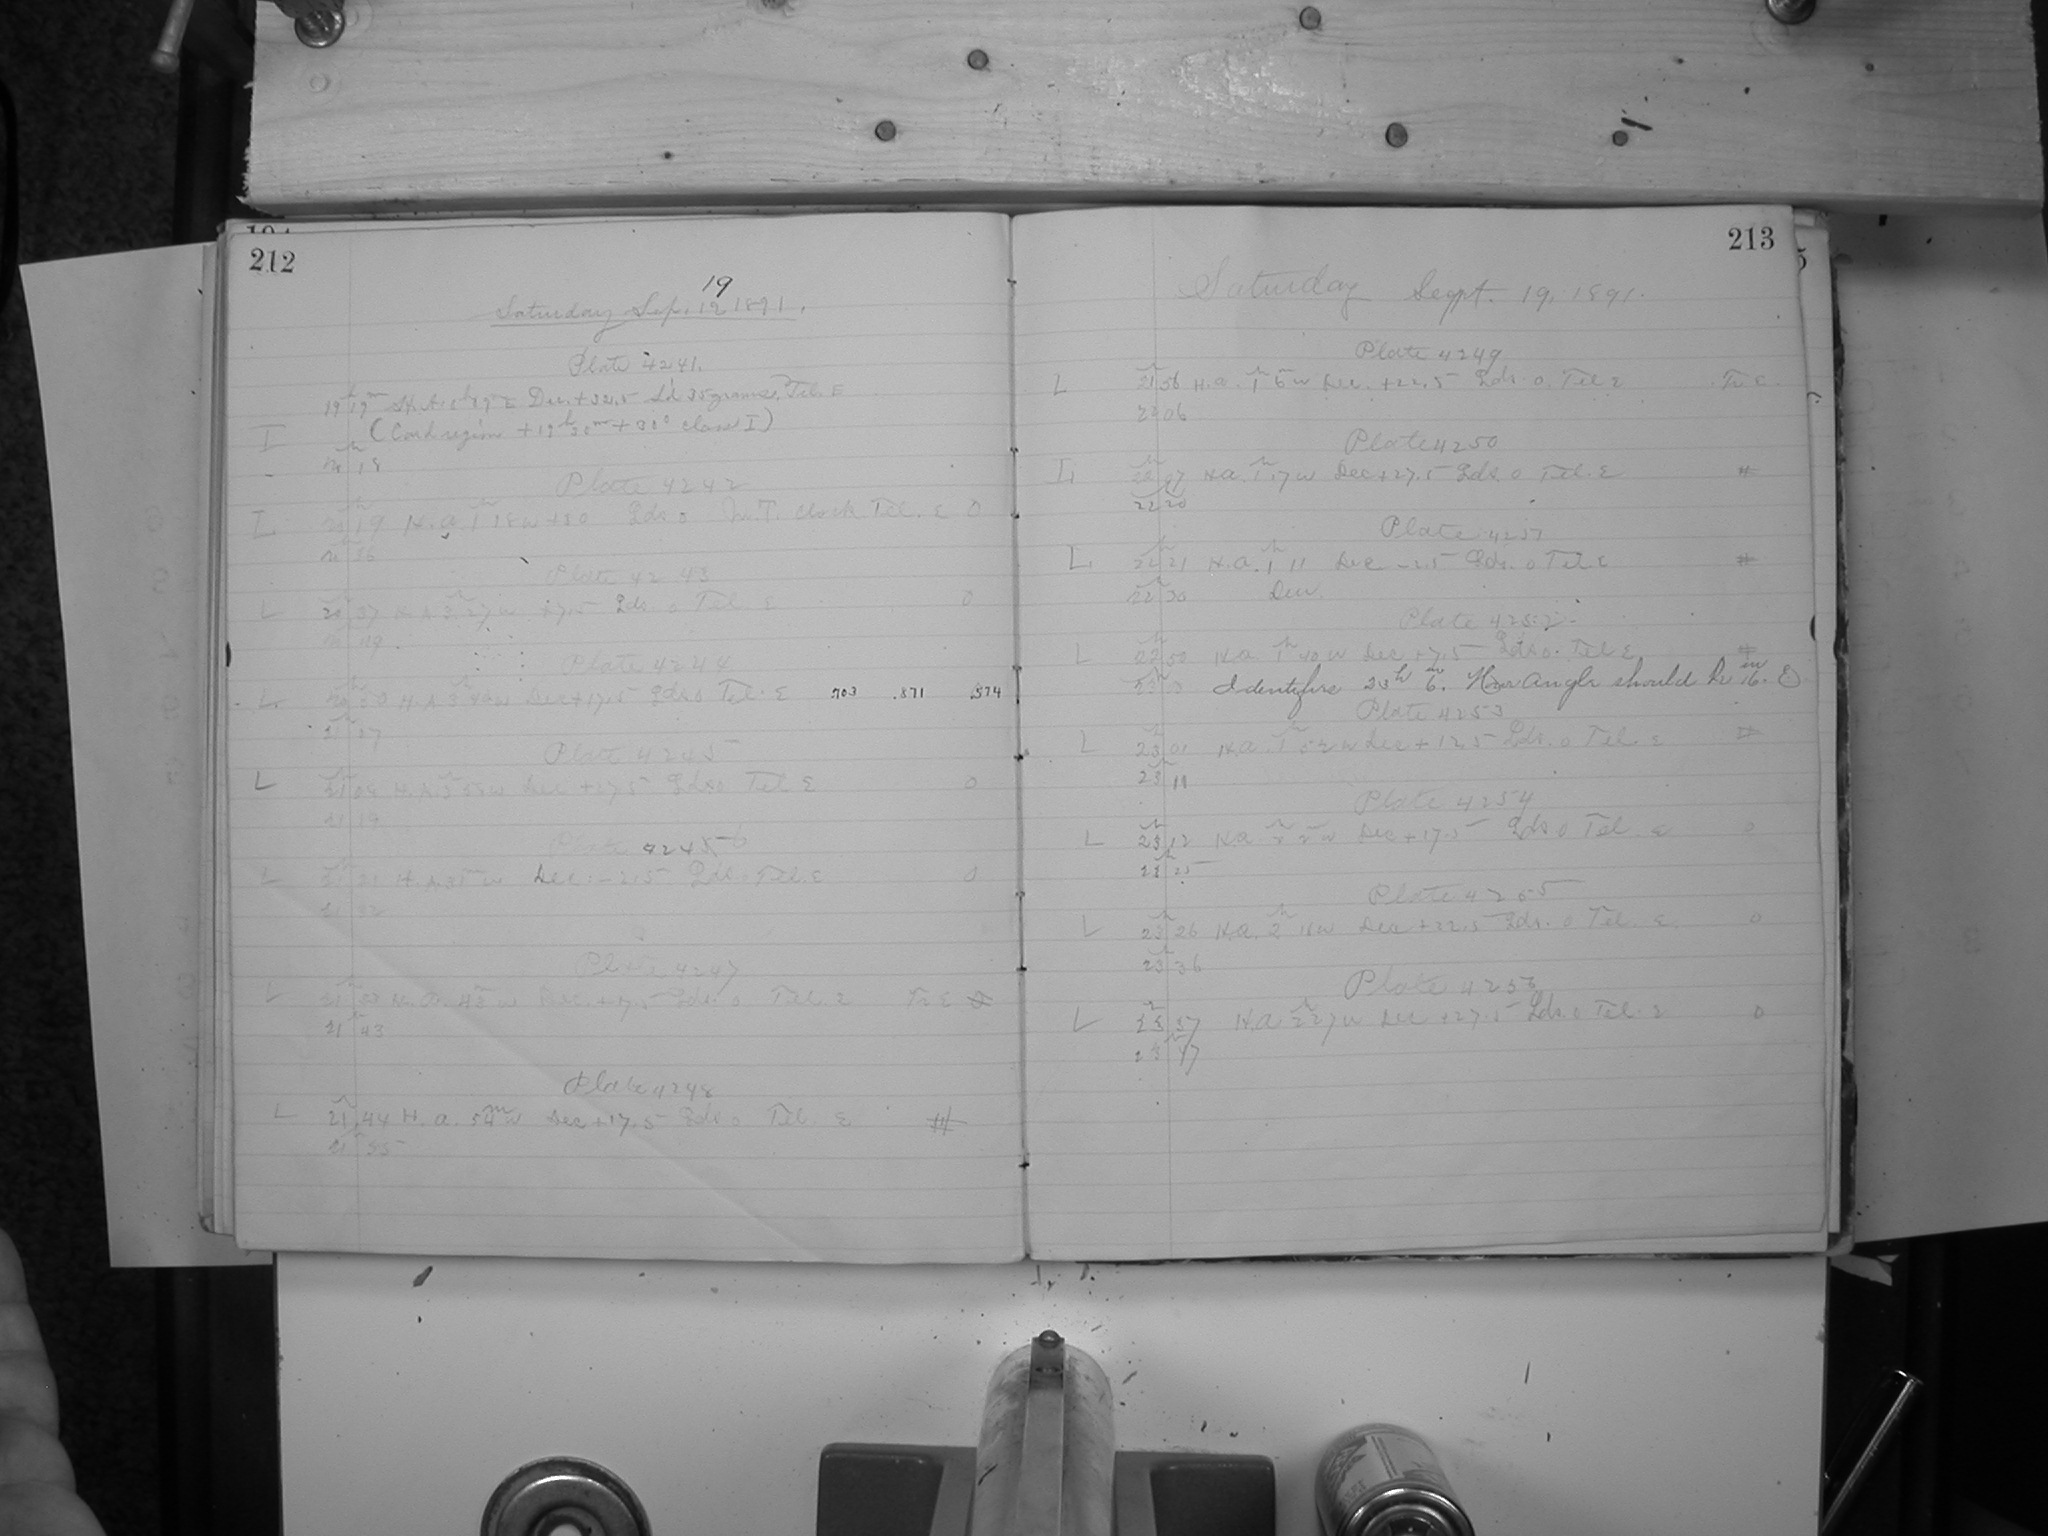 212
19
Saturday Sep. 12 1891.
Plate 4241.
19 19 H.A. E Dec. + 32.5 Ld 35 grammes. Tel. E
I (Cord region + 19h 30m + 30° class I)
18
Plate 4242
L 20 19 H.A. 1 18 w + 30 Lds 0 M.T. clock Tel. E 0
20 36
Plate 4243
L 20 37 H.A. 3 27 w +7.5 Lds. 0 Tel. E 0
Plate 4244
L H.A. 3 40 w Dec + 17.5 Lds 0 Tel. E 703 .871 .574
Plate 4245
L 21 08 H.A. 3 w Dec + 27.5 Lds 0 Tel E 0
21 19
Plate 4246
L 21 21 H.A. w Dec. -2.5 Lds. Tel. E 0
21 32
Plate 4247
L 21 33 H.A. 43 w Dec. + 7.5 Lds. 0 Tel. E Tr. E #
21 43
Plate 4248
L 21 44 H. a. 54m w Dec + 17.5 Lds 0 Tel. E #
21 55
213
Saturday Sept. 19, 1891.
Plate 4249
L 21 56 H.a. 1h 6m w Dec. +22.5 Lds. 0. Tel E Tr. E.
22 06
Plate 4250
L 22 07 H.a. 1h 17 w Dec + 27.5 Lds. 0 Tel. E #
22 20
Plate 4251
L. 22 21 H.a. 1h 11 Dec -2.5 Lds. 0 Tel. E #
22 30 Dew.
Plate 4252
L 22 50 H.a. 1h 40 w Dec +7.5 Lds 0. Tel E #
23 0 Identifies 23h 6m. Hour angle should be 16m. E
Plate 4253
L 23 01 H.a. 1h 52 w Dec + 12.5 Lds. 0 Tel. E #
23 11
Plate 4254
L 23 12 H.a. 2h 2m w Dec + 17.5 Lds 0 Tel. E 0
23 25
Plate 4255
L 23 26 H.a. 2h 18 w Dec + 32.5 Lds. 0 Tel. E. 0
23 36
Plate 4256
L 23 37 H.a. 2h 27 w Dec + 27.5 Lds. 0 Tel. E 0
23 47